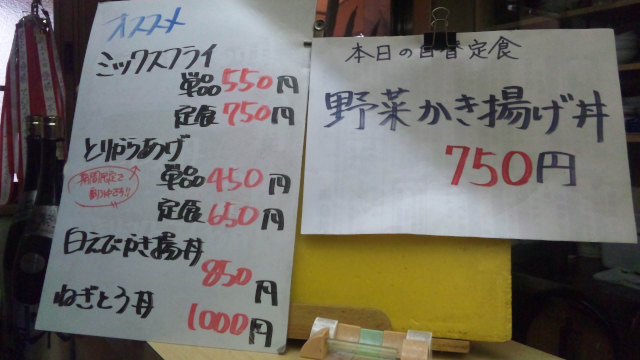 オススメ
ミックスフライ
単品550円
定食750円
とりからあげ
単品450円
定食650円
白えびかき揚丼
850円
ねぎとろ丼
1000円
本日の日替定食
野菜かき揚げ丼
750円